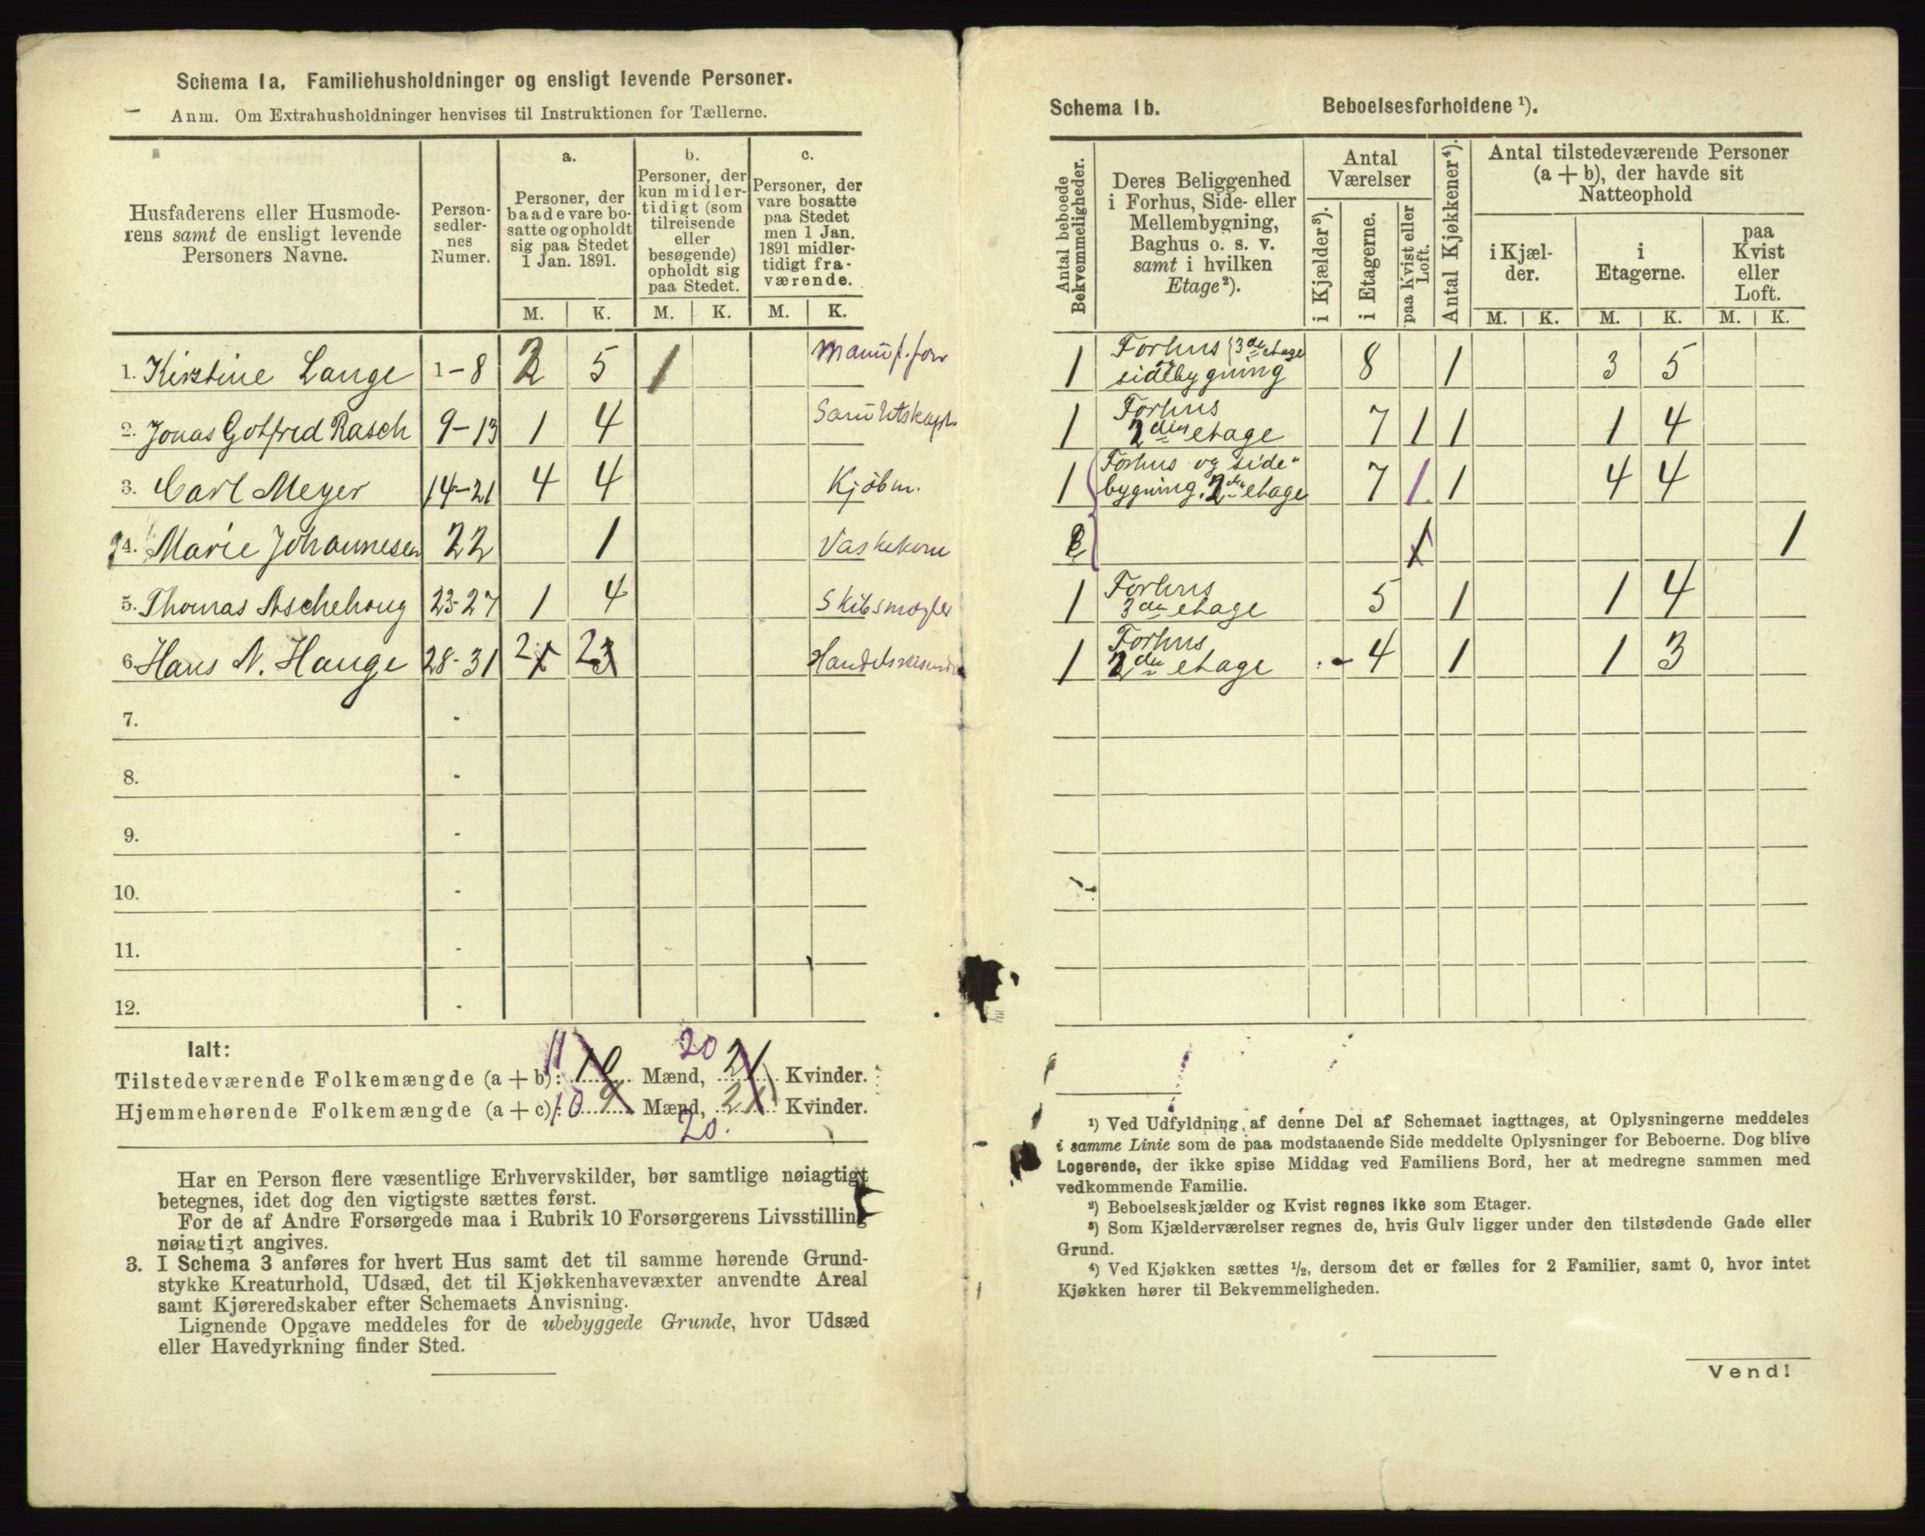 Schema 1a, Familiehusholdninger og ensligt levende Personer.
Anm. Om Extrahusholdninger henvises til Instruktionen for Tællerne.
Husfaderens eller Husmoderens samt de ensligt levende Personers Navne.
Person-sedlernes Numer.
a. Personer, der baade vare bosatte og opholdt sig paa Stedet 1 Jan. 1891.
b. Personer, der kun midlertidigt (som tilreisende eller besøgende) opholdt sig paa Stedet.
c. Personer, der vare bosatte paa Stedet men 1 Jan. 1891 midlertidigt fraværende.
M. K. M. K. M. K.
1. Kirstine Lange 1-8 2 5 1 Manuf. forr
2. Jonas Gotfred Rasch 9-13 1 4
3. Carl Meyer 14-21 4 4 Kjøbm.
4. Marie Johannesen 22 1 Vaskekone
5. Thomas Aschehoug 23-27 1 4 Skibsmægler
6. Hans N. Hauge 28-31 2 1 2 3
7. -
8. -
9. -
10. -
11. -
12. -
Ialt:
Tilstedeværende Folkemængde (a + b): 11 10 Mænd, 20 21 Kvinder.
Hjemmehørende Folkemængde (a + c): 10 9 Mænd, 21 Kvinder.
20.
Har en Person flere væsentlige Erhvervskilder, bør samtlige nøiagtigt
betegnes, idet dog den vigtigste sættes først.
For de af Andre Forsørgede maa i Rubrik 10 Forsørgerens Livsstilling
nøiagtigt angives.
3. I Schema 3 anføres for hvert Hus samt det til samme hørende Grund-
stykke Kreaturhold, Udsæd, det til Kjøkkenhavevæxter anvendte Areal
samt Kjøreredskaber efter Schemaets Anvisning.
Lignende Opgave meddeles for de ubebyggede Grunde, hvor Udsæd
eller Havedyrkning finder Sted.
Schema 1b. Beboelsesforholdene ¹).
Antal beboede Bekvemmeligheder.
Deres Beliggenhed i Forhus, Side- eller Mellembygning, Baghus o. s. v. samt i hvilken Etage²).
Antal Værelser
i Kjælder³).
i Etagerne.
paa Kvist eller Loft.
Antal Kjøkkener⁴).
Antal tilstedeværende Personer (a + b), der havde sit Natteophold
i Kjælder.
i Etagerne.
paa Kvist eller Loft.
M. K. M. K. M. K.
1 Forhus 3de etage
sidebygning 8 1 3 5
1 Forhus
2den etage 7 1 1 1 4
1 Forhus og side-
bygning. 2den etage 7 1 1 4 4
1 1
1 Forhus
3die etage 5 1 1 4
1 Forhus
2den etage - 4 1 1 3
¹) Ved Udfyldning af denne Del af Schemaet iagttages, at Oplysningerne meddeles
i samme Linie som de paa modstaaende Side meddelte Oplysninger for Beboerne. Dog blive
Logerende, der ikke spise Middag ved Familiens Bord, her at medregne sammen med
vedkommende Familie.
²) Beboelseskjælder og Kvist regnes ikke som Etager.
³) Som Kjælderværelser regnes de, hvis Gulv ligger under den tilstødende Gade eller
Grund.
⁴) Ved Kjøkken sættes ½, dersom det er fælles for 2 Familier, samt 0, hvor intet
Kjøkken hører til Bekvemmeligheden.
Vend!